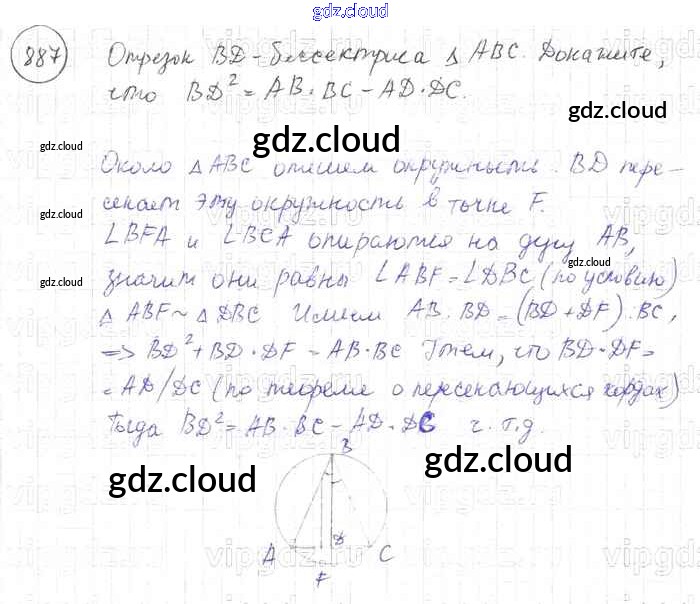 gdz.cloud
887 Отрезок BD - биссектриса △ ABC. Докажите,
что BD² = AB · BC - AD · DC.
gdz.cloud
gdz.cloud
gdz.cloud
Около △ ABC опишем окружность. BD пере-
gdz.cloud
секает эту окружность в точке F.
∠BFA и ∠BCA опираются на дугу AB,
gdz.cloud
gdz.cloud
значит они равны ∠ABF = ∠DBC (по условию)
△ ABF ~ △ DBC Имеем AB : BD = (BD + DF) : BC,
=> BD² + BD · DF = AB · BC Учтем, что BD · DF =
= AD/DC (по теореме о пересекающихся хордах)
Тогда BD² = AB · BC - AD · DC ч.т.д.
B
gdz.cloud
gdz.cloud
A D C
F
vipgdz.ru